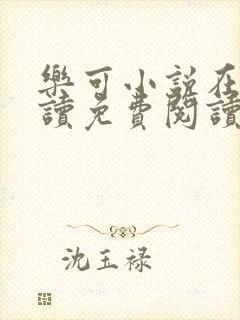 樂可小說在
讀免費閱讀
沈玉禄